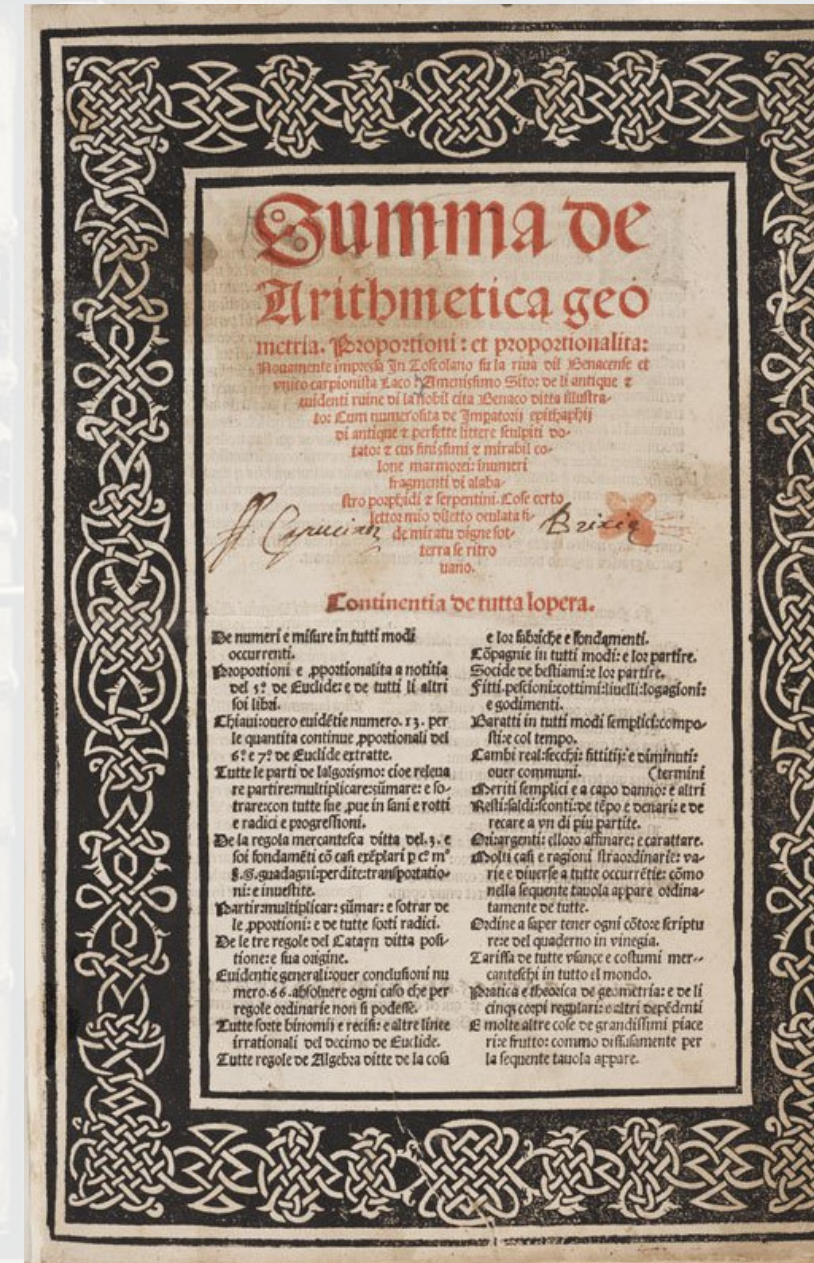 Summa de
Arithmetica geo
metria. Proportioni: et proportionalita:
Nouamente impressa In Toscolano su la riua dil Benacense et
vnico carpionista Laco: Amenissimo Sito: de li antique ⁊
euidenti ruine di la nobil cita Benaco ditta illustra-
to: Cum numerosita de Impatorij epithaphij
di antique ⁊ perfette littere sculpiti do-
tato: ⁊ cus finissimi ⁊ mirabil co-
lone marmorei: inumeri
fragmenti di alaba-
stro porphidi ⁊ serpentini. Cose certo
lettor mio diletto oculata fi-
Capucian de miratu digne sot- Brixie
terra se ritro
uano.
Continentia de tutta lopera.
De numeri e misure in tutti modi
occurrenti.
Proportioni e ꝓportionalita a notitia
del 5º de Euclide: e de tutti li altri
soi libri.
Chiaui: ouero euidētie numero. 13. per
le quantita continue ꝓportionali del
6º e 7º de Euclide extratte.
Tutte le parti de lalgorismo: cioe releua
re partire: multiplicare: sūmare: e so-
trare: con tutte sue ꝓue in sani e rotti
e radici e progressioni.
De la regola mercantesca ditta del. 3. e
soi fondamēti cō casi exēplari p cº mº
§. S. guadagni: perdite: transportatio-
ni: e inuestite.
Partir: multiplicar: sūmar: e sotrar de
le ꝓportioni: e de tutte sorti radici.
De le tre regole del Catayn ditta posi-
tione: e sua origine.
Euidentie generali: ouer conclusioni nu
mero. 66. absoluere ogni caso che per
regole ordinarie non si podesse.
Tutte sorte binomij e recisi: e altre linee
irrationali del decimo de Euclide.
Tutte regole de Algebra ditte de la cosa
e lor fabriche e fondamenti.
Cōpagnie in tutti modi: e lor partire.
Socide de bestiami: e lor partire.
Fitti: pescioni: cottimi: liuelli: logagioni:
e godimenti.
Baratti in tutti modi semplici: compo-
sti: e col tempo.
Cambi real: secchi: fittitij: e diminuti:
ouer communi. (termini
Meriti semplici e a capo danno: e altri
Resti: saldi: sconti: de tēpo e denari: e de
recare a vn di piu partite.
Ori: argenti: e lloro affinare: e carattare.
Molti casi e ragioni straordinarie: va-
rie e diuerse a tutte occurrētie: cōmo
nella sequente tauola appare ordina-
tamente de tutte.
Ordine a saper tener ogni cōto: e scriptu
re: e del quaderno in vinegia.
Tariffa de tutte vsançe e costumi mer-
canteschi in tutto el mondo.
Pratica e theorica de geometria: e de li
cinqȝ corpi regulari: e altri depēdenti
E molte altre cose de grandissimi piace
ri: e frutto: commo diffusamente per
la sequente tauola appare.